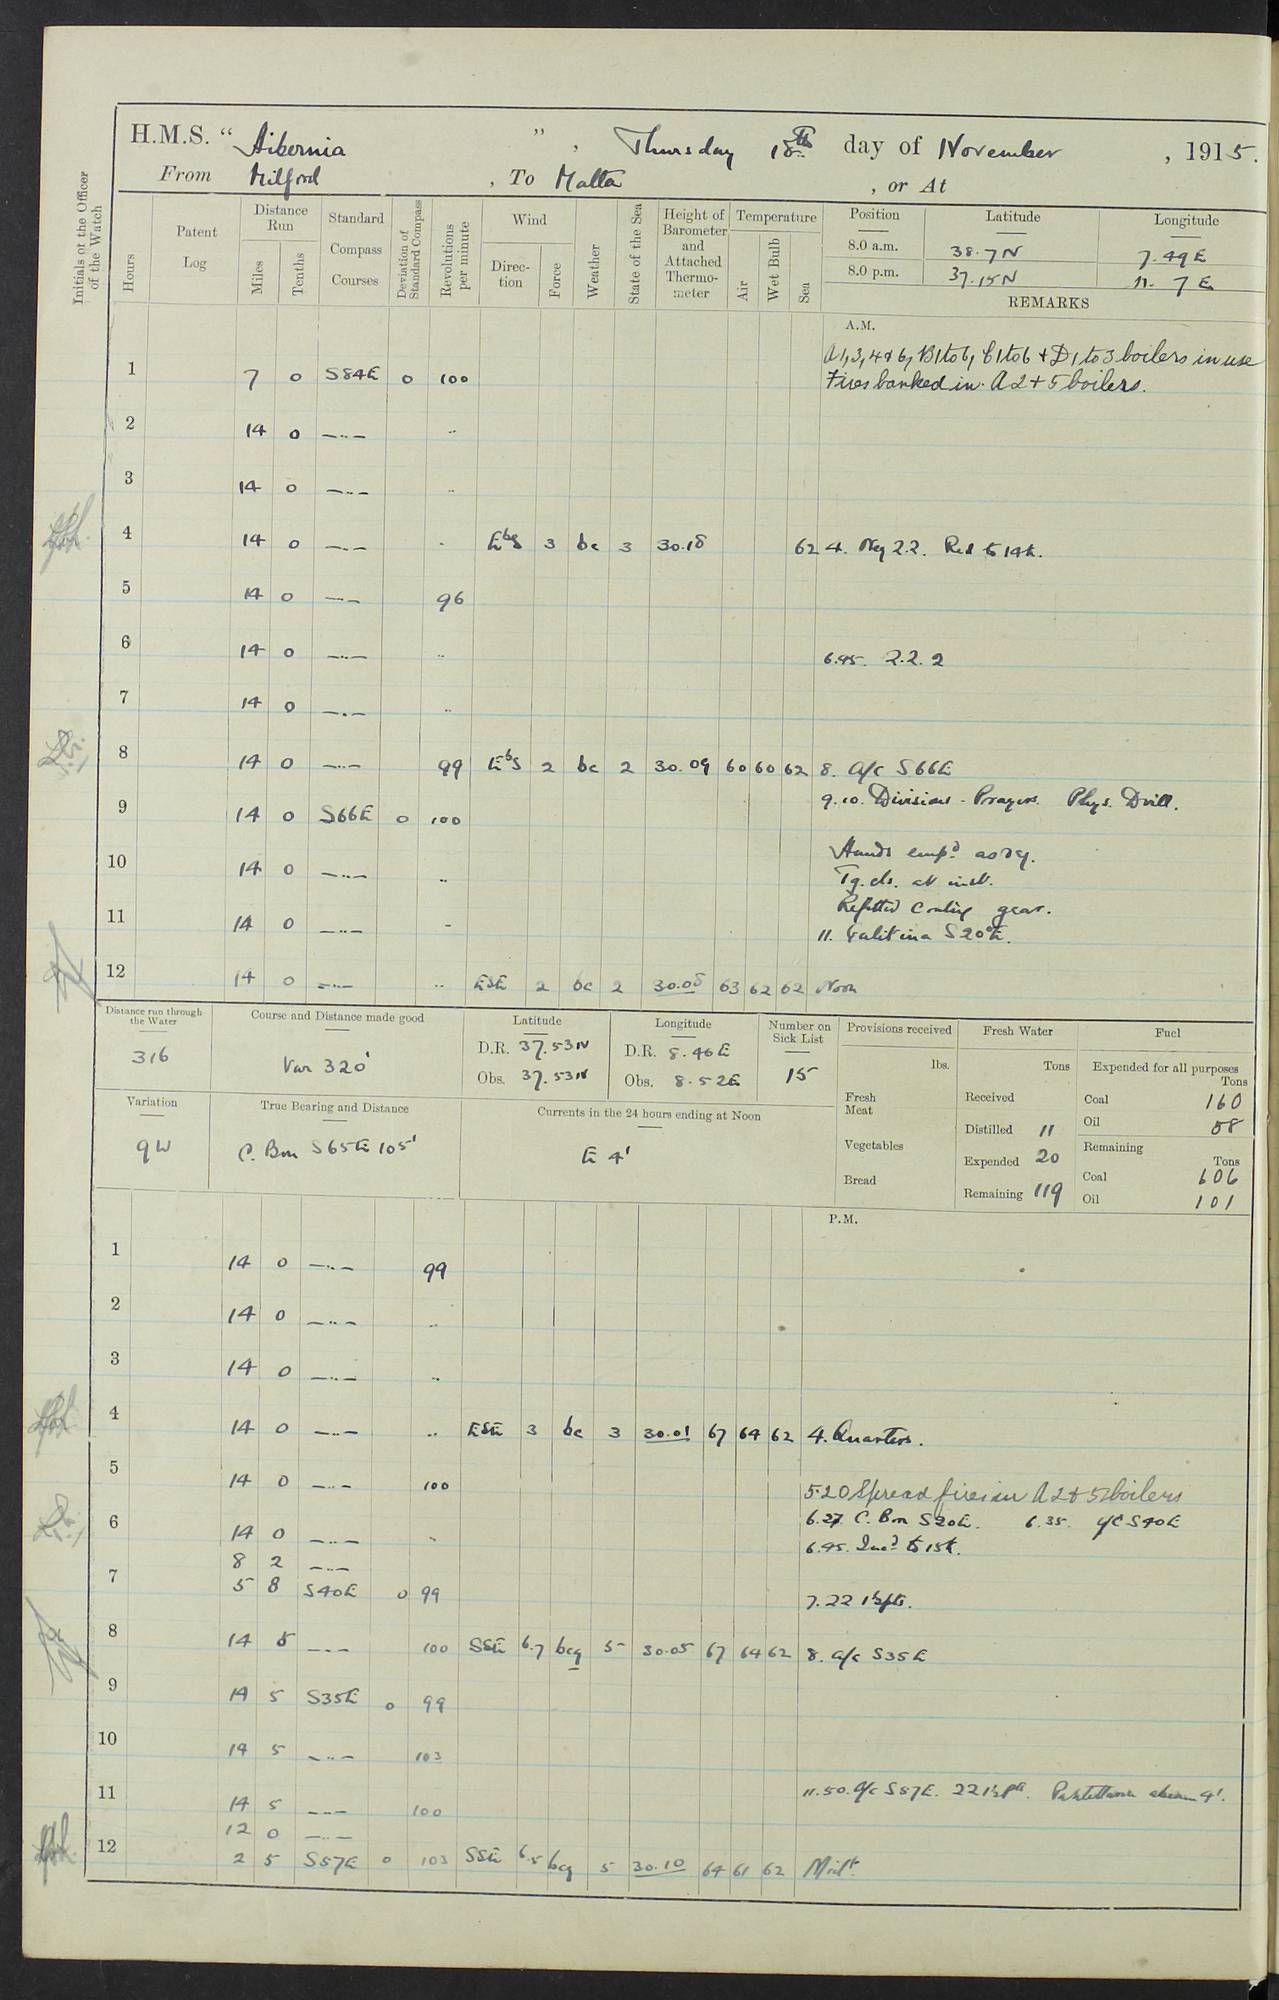 H.M.S. "Hibernia", Thursday 18th day of November, 1915.
From Milford, To Malta, or At
Initials of the Officer of the Watch
Hours
Patent Log
Distance Run
Miles
Tenths
Standard Compass Courses
Deviation of Standard Compass
Revolutions per minute
Wind
Direction
Force
Weather
State of the Sea
Height of Barometer and Attached Thermometer
Temperature
Air
Wet Bulb
Sea
Position Latitude Longitude
8.0 a.m. 38.7N 7.49E
8.0 p.m. 37.15N 11.7E
REMARKS
A.M.
A1,3,4+6, B1to6, C1to6 + D1to3 boilers in use
1 7 0 S84E 0 100 Fires banked in A2+5 boilers.
2 14 0 —..— ..
3 14 0 —..— ..
4 14 0 —..— .. EbS 3 bc 3 30.18 62 4. Neg 2.2. Red to 14k.
5 14 0 —..— 96
6 14 0 —..— .. 6.45. 2.2.2
7 14 0 —..— ..
8 14 0 —..— 99 EbS 2 bc 2 30.09 60 60 62 8. a/c S66E
9.10. Divisions - Prayers. Phys. Drill.
9 14 0 S66E 0 100
Hands empd. as req.
10 14 0 —..— ..
Tg. cls. at inst.
Refitted Coaling gear.
11 14 0 —..— ..
11. Galitina S20°E.
12 14 0 —..— .. ESE 2 bc 2 30.08 63 62 62 Noon
Distance run through the Water
316
Course and Distance made good
Var 320'
Latitude
D.R. 37.53N
Obs. 37.53N
Longitude
D.R. 8.46E
Obs. 8.52E
Number on Sick List
15
Provisions received
lbs.
Fresh Meat
Vegetables
Bread
Fresh Water
Tons
Received
Distilled 11
Expended 20
Remaining 119
Fuel
Expended for all purposes
Tons
Coal 160
Oil 58
Remaining
Tons
Coal 606
Oil 101
Variation
9W
True Bearing and Distance
C. Bon S65E 105'
Currents in the 24 hours ending at Noon
E 4'
P.M.
1 14 0 —..— 99
2 14 0 —..— ..
3 14 0 —..— ..
4 14 0 —..— .. ESE 3 bc 3 30.01 67 64 62 4. Quarters.
5 14 0 —..— 100
5.20 Spread fires in A2+5 boilers
6.27. C. Bon S20E. 6.35. a/c S40E
6 14 0 —..— ..
6.45. Incd. to 15k.
8 2 —..—
7 5 8 S40E 0 99
7.22 1½pts.
8 14 5 —..— 100 SSE 6.7 bcq 5 30.05 67 64 62 8. a/c S35E
9 14 5 S35E 0 99
10 14 5 —..— 103
11.50. a/c S57E. 22 1½pts. Pantellaria abeam 9'.
11 14 5 —..— 100
12 0 —..—
12 2 5 S57E 0 103 SSE 6.5 bcq 5 30.10 64 61 62 Midt.